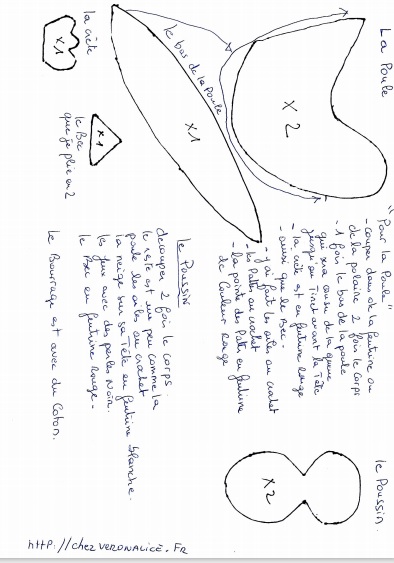 La Poule
x2
le bas de la Poule
x1
la crête
x1
le Bec
que je plie en 2
x1
"Pour la Poule"
- couper dans de la feutrine ou
de la polaire 2 fois le corps
- 1 fois le bas de la poule
qui sera cousu de la queue
jusqu'au avant la Tête
- la crête est en feutrine rouge
- ainsi que le Bec -
- j'ai fait les ailes au crochet
- les Pattes au crochet
- la pointe des Pattes en feutrine
de Couleur rouge
le Poussin
découper 2 fois le corps
le reste est un peu comme la
poule les ailes au crochet
la neige sur sa Tête en feutrine blanche.
les yeux avec des perles Noir.
le Bec en feutrine rouge -
le Bourrage est avec du Coton.
le Poussin.
x2
http://chezveronalice.fr